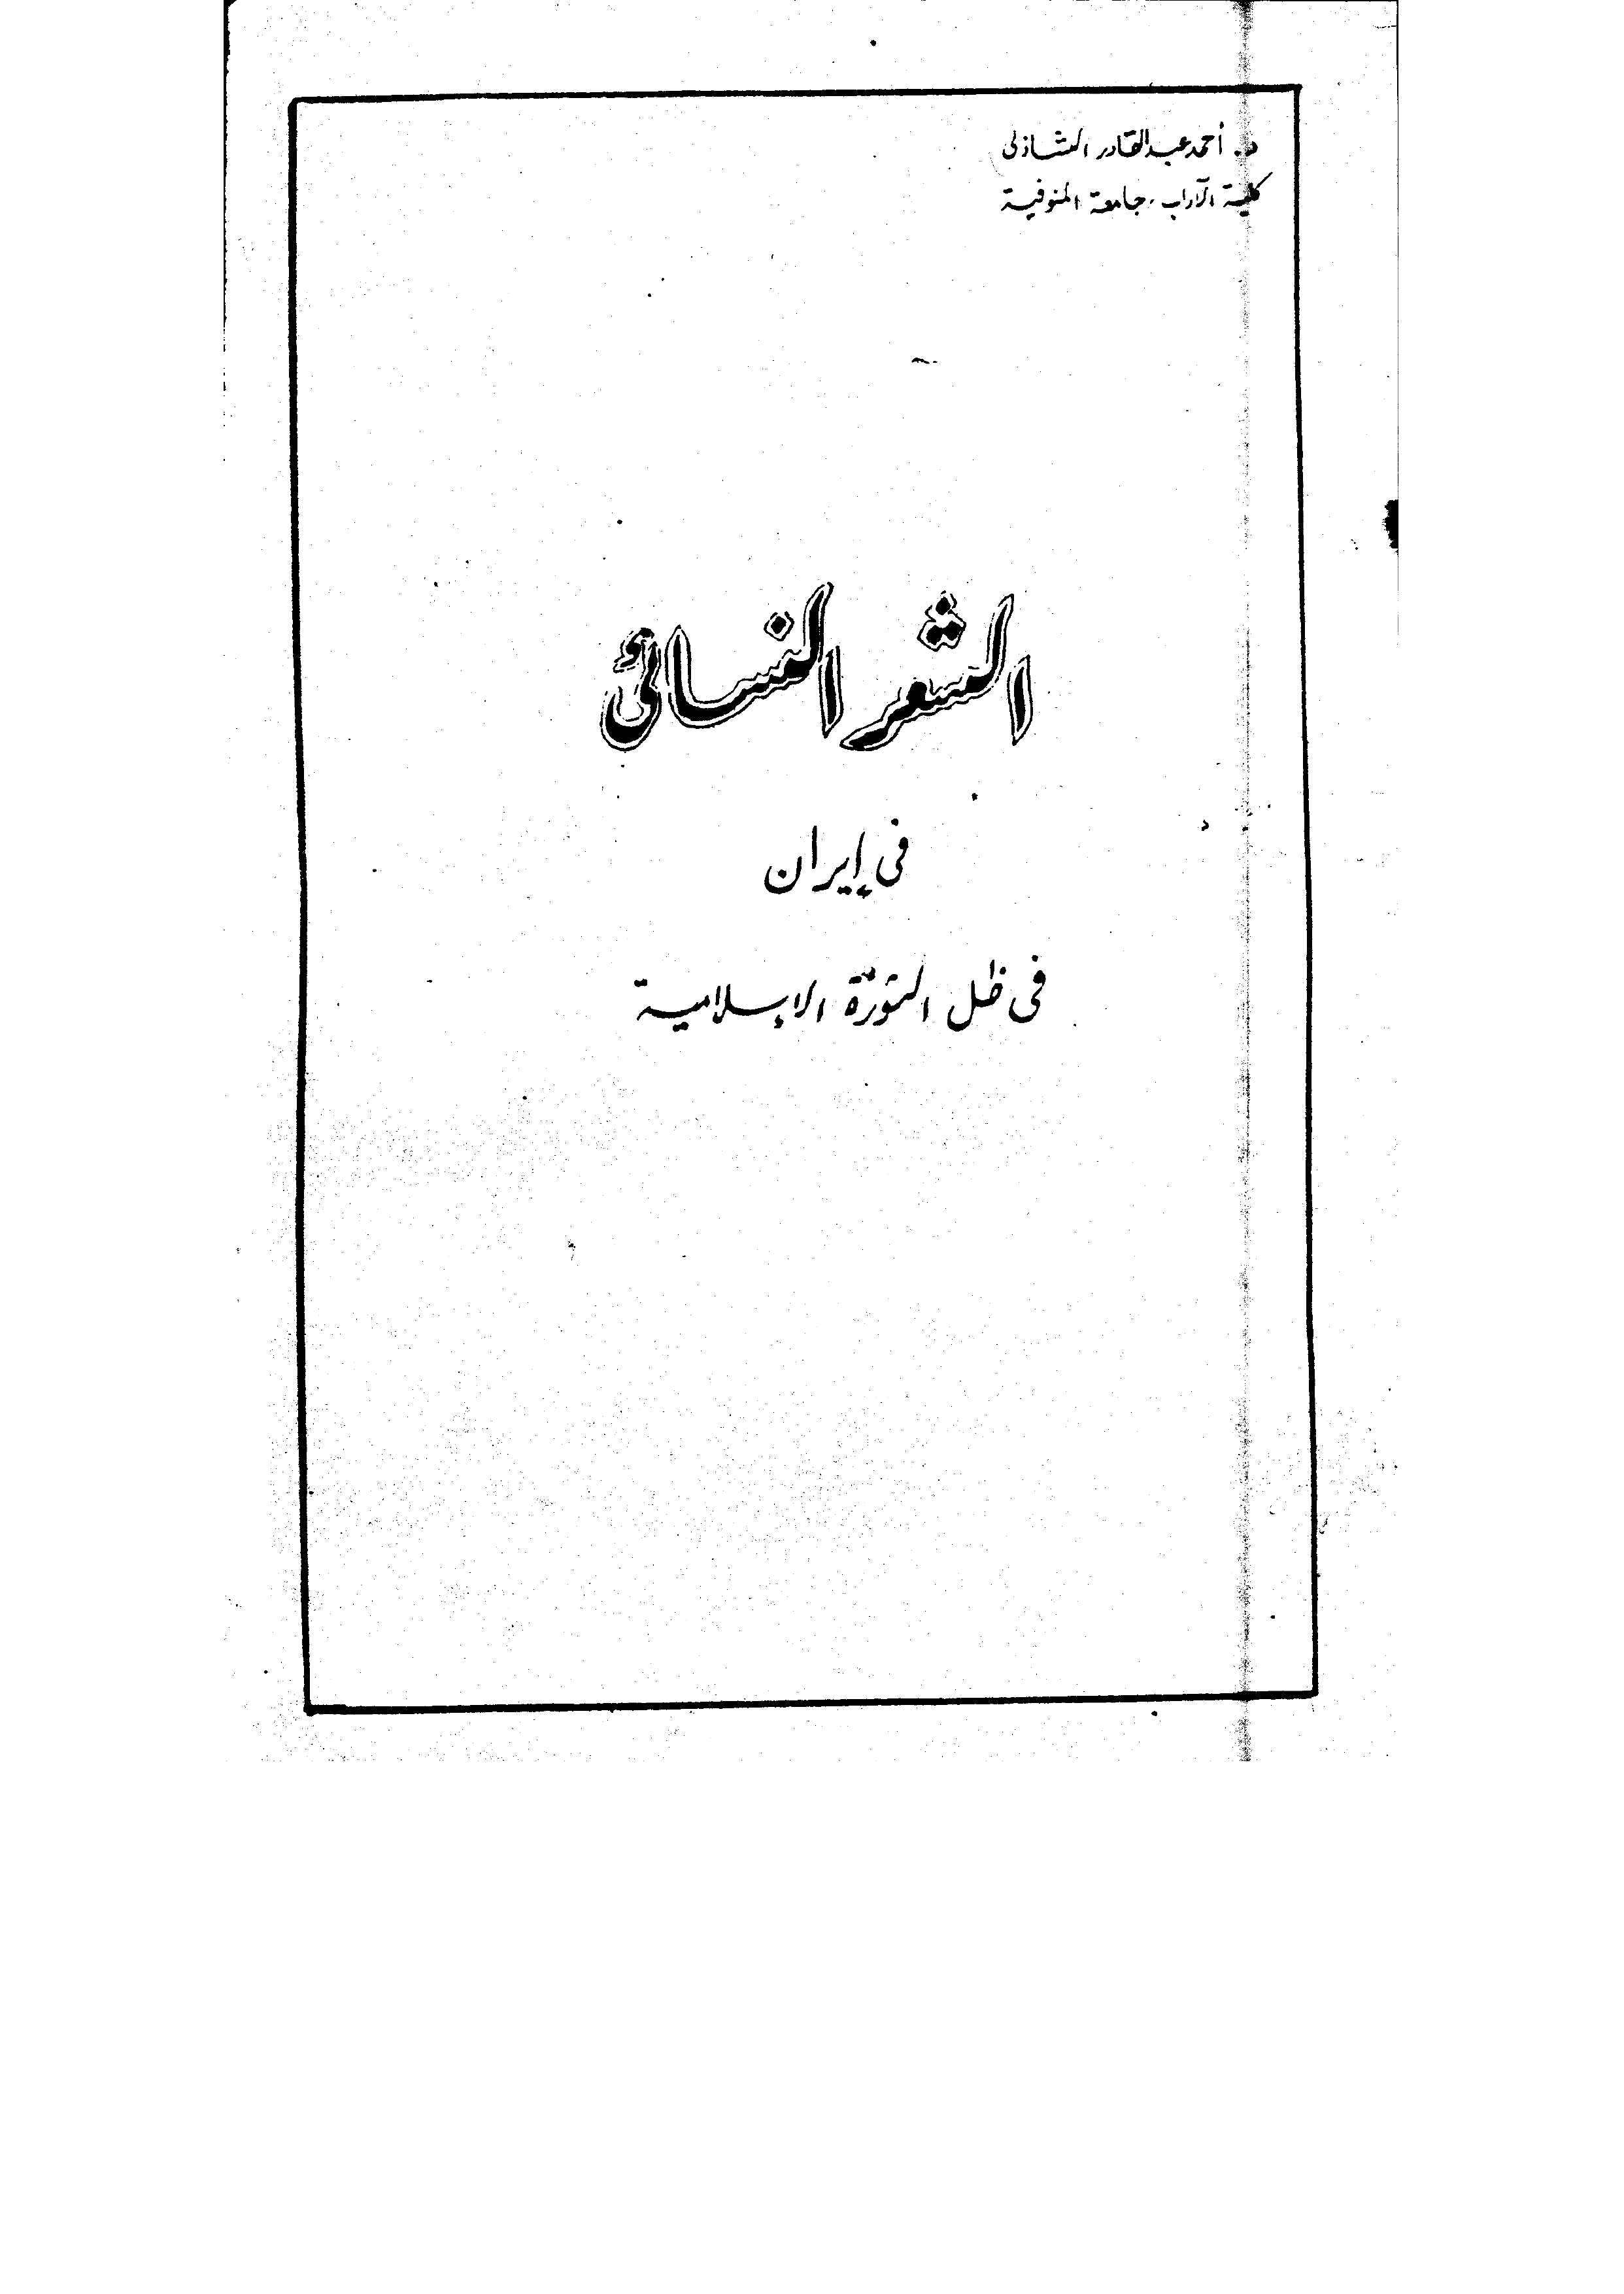 د. أحمد عبد القادر الشاذلى
كلية الآداب . جامعة المنوفية
الشعر النسائى
فى إيران
فى ظل الثورة الإسلامية